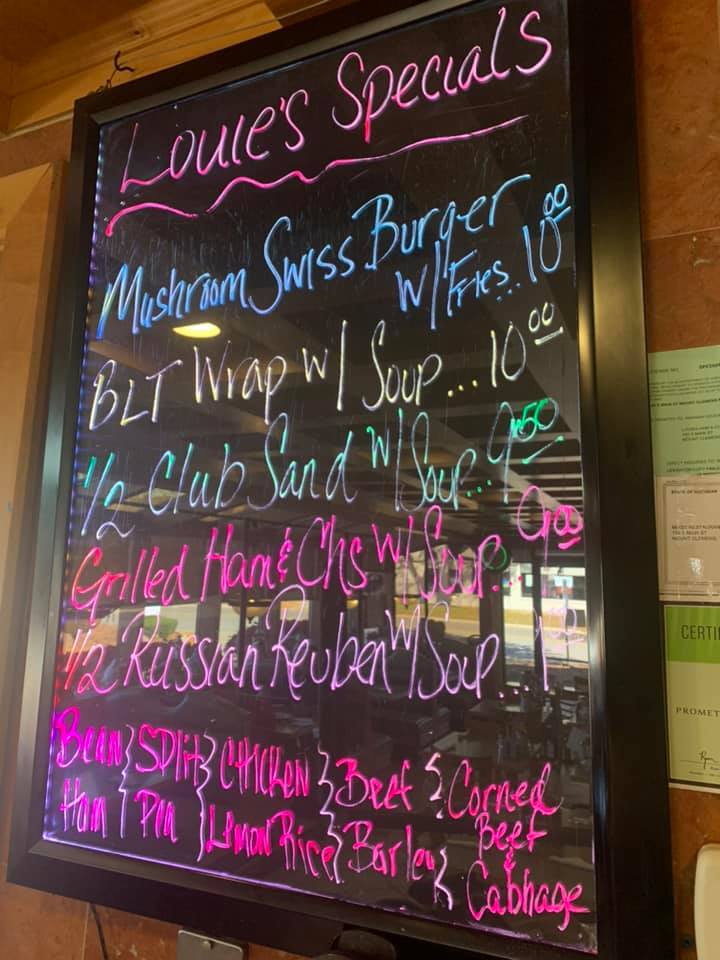 Louie's Specials
Mushroom Swiss Burger
w/ Fries.. 10⁰⁰
BLT Wrap w/ Soup... 10⁰⁰
1/2 Club Sand w/ Soup... 9.50
Grilled Ham & Chs w/ Soup... 9.00
1/2 Russian Reuben w/ Soup...
Bean } Split } Chicken } Beef } Corned
Ham } Pea } Lemon Rice } Barley } Beef
&
Cabbage
STATE OF MICHIGAN
MOUNT CLEMENS
CERTI
PROMET